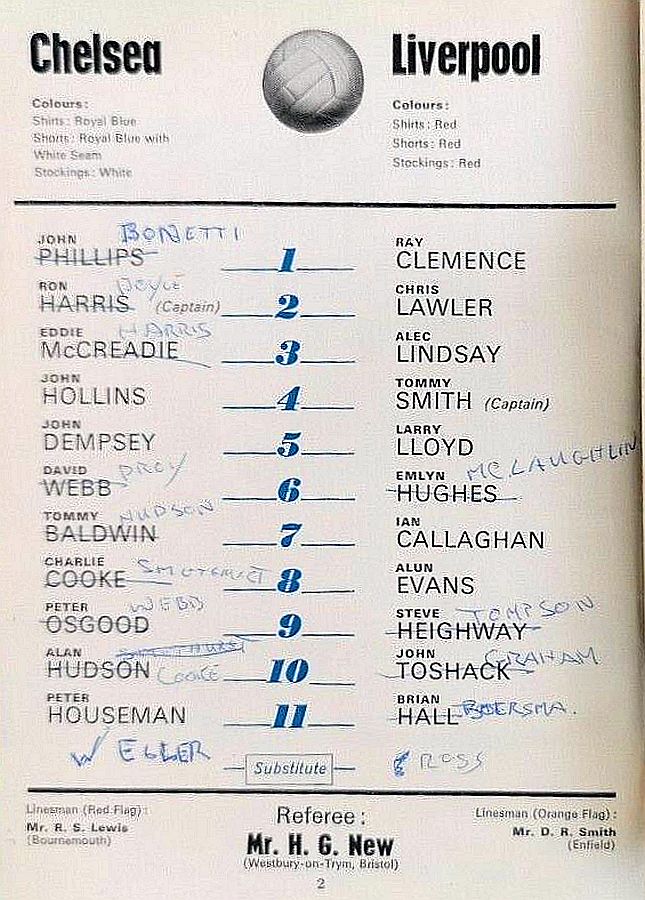 Chelsea
Colours:
Shirts: Royal Blue
Shorts: Royal Blue with
White Seam
Stockings: White
Liverpool
Colours:
Shirts: Red
Shorts: Red
Stockings: Red
JOHN BONETTI
PHILLIPS
1
RAY
CLEMENCE
RON
HARRIS (Captain)
2
CHRIS
LAWLER
EDDIE HARRIS
McCREADIE
3
ALEC
LINDSAY
JOHN
HOLLINS
4
TOMMY
SMITH (Captain)
JOHN
DEMPSEY
5
LARRY
LLOYD
DAVID DROY
WEBB
6
EMLYN MCLAUGHLIN
HUGHES
TOMMY HUDSON
BALDWIN
7
IAN
CALLAGHAN
CHARLIE
COOKE
8
ALUN
EVANS
PETER WEBB
OSGOOD
9
STEVE TOMPSON
HEIGHWAY
ALAN
HUDSON COOKE
10
JOHN GRAHAM
TOSHACK
PETER
HOUSEMAN
11
BRIAN
HALL BOERSMA.
WELLER
Substitute
ROSS
Linesman (Red Flag):
Mr. R. S. Lewis
(Bournemouth)
Referee:
Mr. H. G. New
(Westbury-on-Trym, Bristol)
Linesman (Orange Flag):
Mr. D. R. Smith
(Enfield)
2